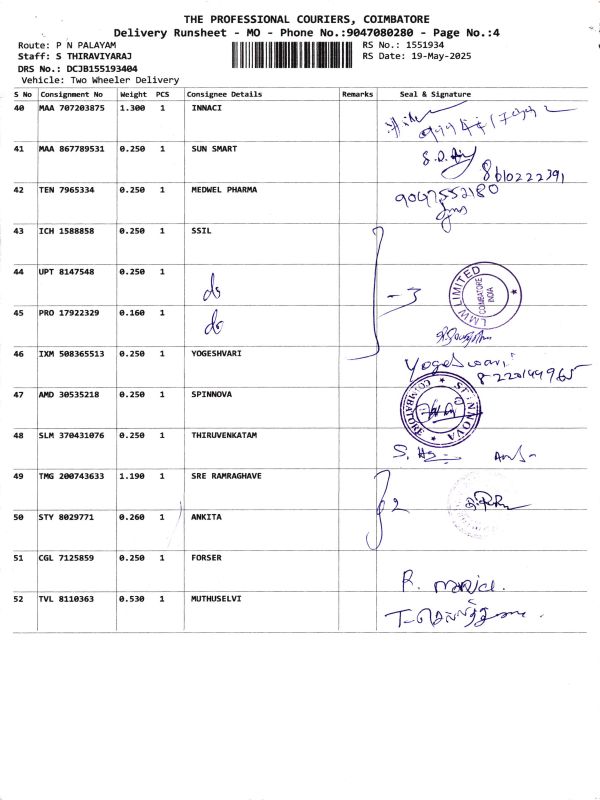 THE PROFESSIONAL COURIERS, COIMBATORE
Delivery Runsheet - MO - Phone No.:9047080280 - Page No.:4
Route: P N PALAYAM RS No.: 1551934
Staff: S THIRAVIYARAJ RS Date: 19-May-2025
DRS No.: DCJB155193404
Vehicle: Two Wheeler Delivery
S No Consignment No Weight PCS Consignee Details Remarks Seal & Signature
40 MAA 707203875 1.300 1 INNACI
41 MAA 867789531 0.250 1 SUN SMART
8610222391
42 TEN 7965334 0.250 1 MEDWEL PHARMA 9047552180
43 ICH 1588858 0.250 1 SSIL
44 UPT 8147548 0.250 1
do - 3
LMW LIMITED COIMBATORE INDIA
45 PRO 17922329 0.160 1
do
46 IXM 508365513 0.250 1 YOGESHVARI Yogeswari
8220144965
47 AMD 30535218 0.250 1 SPINNOVA
SPINNOVA COIMBATORE
48 SLM 370431076 0.250 1 THIRUVENKATAM
49 TMG 200743633 1.190 1 SRE RAMRAGHAVE
2
50 STY 8029771 0.260 1 ANKITA
51 CGL 7125859 0.250 1 FORSER
52 TVL 8110363 0.530 1 MUTHUSELVI